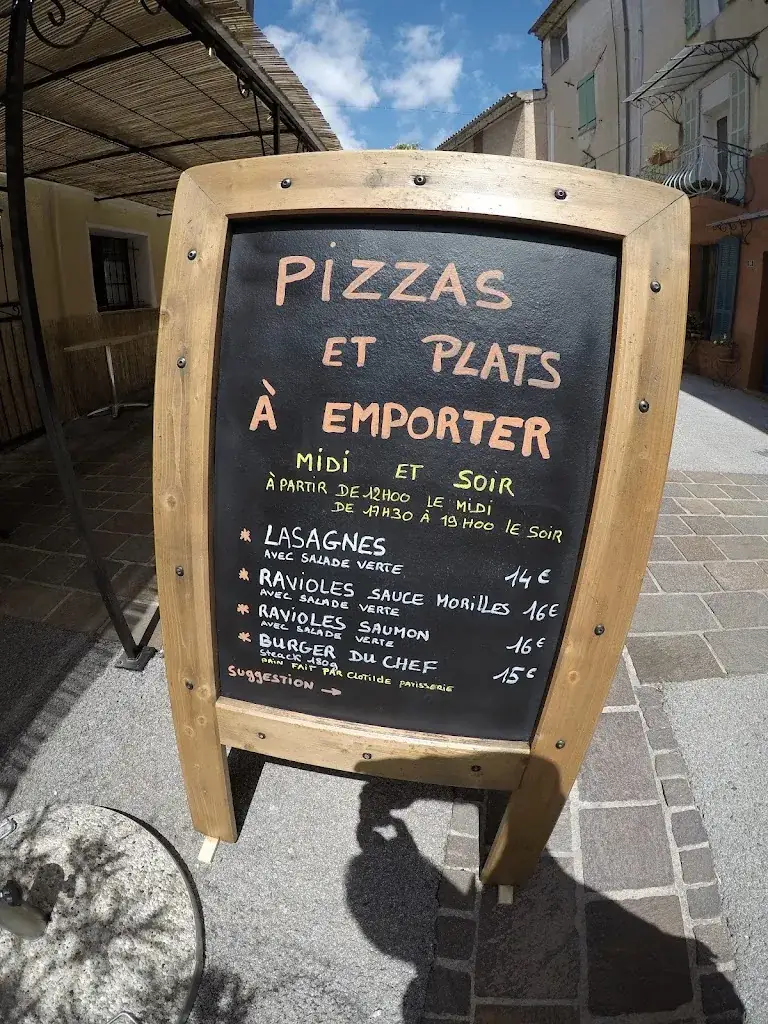 PIZZAS
ET PLATS
À EMPORTER
MIDI ET SOIR
À PARTIR DE 12H00 LE MIDI
DE 17H30 À 19H00 LE SOIR
* LASAGNES 14€
AVEC SALADE VERTE
* RAVIOLES SAUCE MORILLES 16€
AVEC SALADE VERTE
* RAVIOLES SAUMON 16€
AVEC SALADE VERTE
* BURGER DU CHEF 15€
steack 180g
PAIN FAIT PAR CLOTILDE PATISSERIE
SUGGESTION →